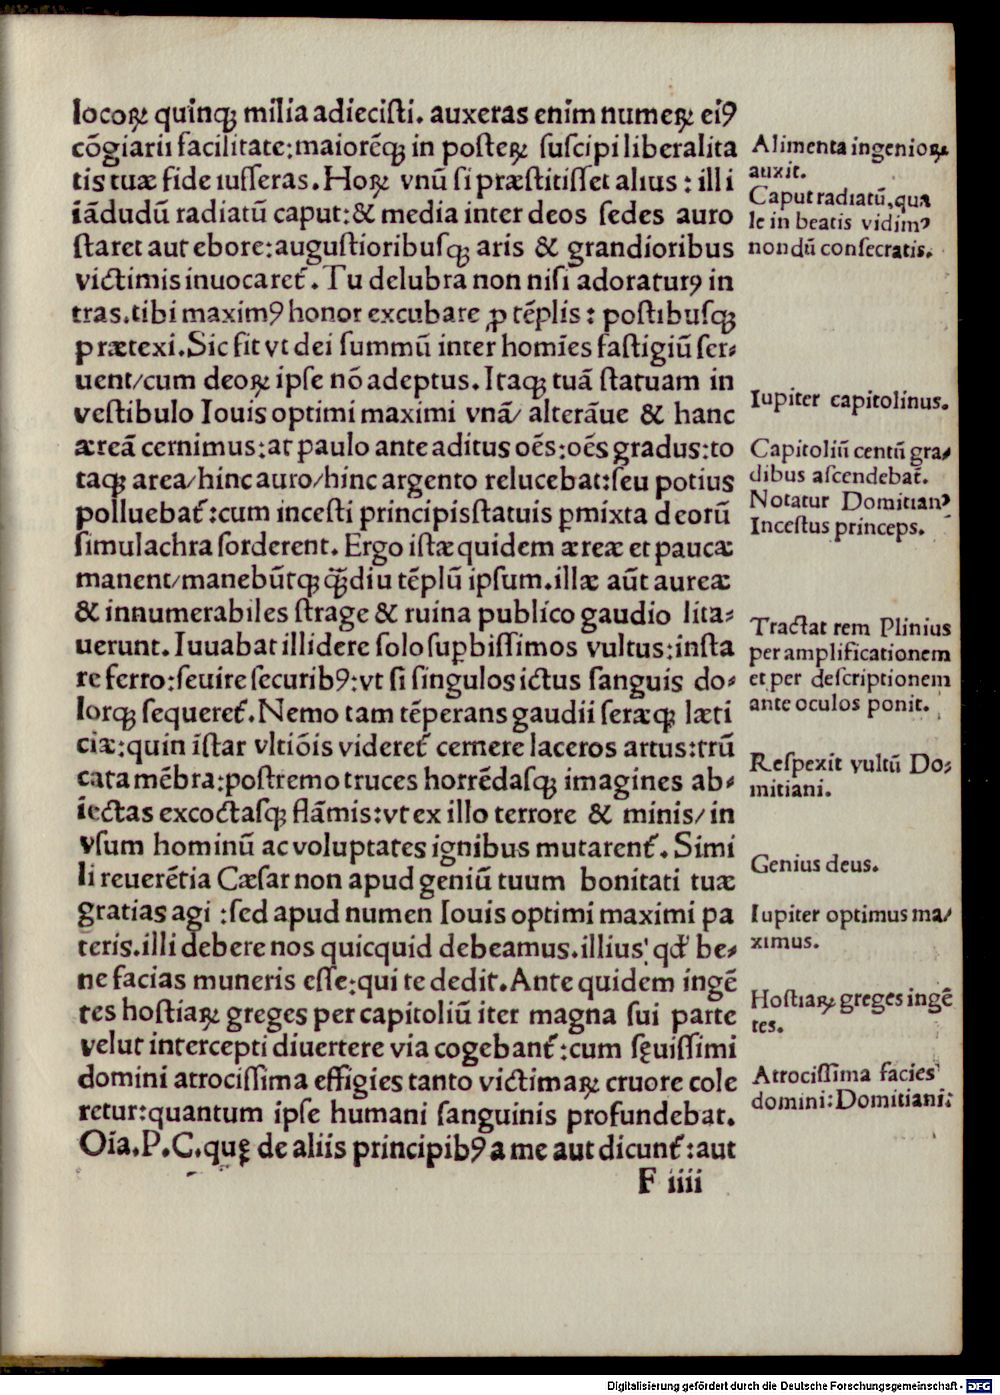 locoꝝ quinqꝫ milia adiecisti. auxeras enim numeꝝ eiꝰ
cōgiarii facilitate:maiorēqꝫ in posteꝝ suscipi liberalita
tis tuæ fide iusseras. Hoꝝ vnū si præstitisset alius: illi
iādudū radiatū caput:& media inter deos sedes auro
staret aut ebore:augustioribusqꝫ aris & grandioribus
victimis inuocaret᷑. Tu delubra non nisi adoraturꝰ in
tras.tibi maximꝰ honor excubare ꝓ tēplis: postibusqꝫ
prætexi.Sic fit vt dei summū inter homīes fastigiū ser⸗
uent/cum deoꝝ ipse nō adeptus. Itaqꝫ tuā statuam in
vestibulo Iouis optimi maximi vnā/ alterāue & hanc
æreā cernimus:at paulo ante aditus oēs:oēs gradus:to
taqꝫ area/hinc auro/hinc argento relucebat:seu potius
polluebat᷑:cum incesti principis statuis ꝑmixta deorū
simulachra sorderent. Ergo istæ quidem æreæ et paucæ
manent/manebūtqꝫ qͣ̄diu tēplū ipsum.illæ aūt aureæ
& innumerabiles strage & ruina publico gaudio lita⸗
uerunt. Iuuabat illidere solo suꝑbissimos vultus:insta
re ferro:seuire securibꝰ:vt si singulos ictus sanguis do⸗
lorqꝫ sequeret᷑. Nemo tam tēperans gaudii seræqꝫ læti
ciæ:quin īstar vltiōis videret᷑ cernere laceros artus:trū
cata mēbra:postremo truces horrēdasqꝫ imagines ab⸗
iectas excoctasqꝫ flāmis:vt ex illo terrore & minis/in
vsum hominū ac voluptates ignibus mutarent᷑. Simi
li reuerētia Cæsar non apud geniū tuum bonitati tuæ
gratias agi :sed apud numen Iouis optimi maximi pa
teris.illi debere nos quicquid debeamus.illius qd̓ be⸗
ne facias muneris esse:qui te dedit. Ante quidem ingē
tes hostiaꝝ greges per capitoliū iter magna sui parte
velut intercepti diuertere via cogebant᷑:cum sęuissimi
domini atrocissima effigies tanto victimaꝝ cruore cole
retur:quantum ipse humani sanguinis profundebat.
Oīa.P.C.quę de aliis principibꝰ a me aut dicunt᷑:aut
F iiii
Alimenta ingenioꝝ
auxit.
Caput radiatū,qua
le in beatis vidimꝰ
nondū consecratis.
Iupiter capitolinus.
Capitoliū centū gra⸗
dibus ascendebat᷑.
Notatur Domitianꝰ
Incestus princeps.
Tractat rem Plinius
per amplificationem
et per descriptionem
ante oculos ponit.
Respexit vultū Do⸗
mitiani.
Genius deus.
Iupiter optimus ma/
ximus.
Hostiaꝝ greges ingē
tes.
Atrocissima facies
domini:Domitiani:
Digitalisierung gefördert durch die Deutsche Forschungsgemeinschaft - DFG